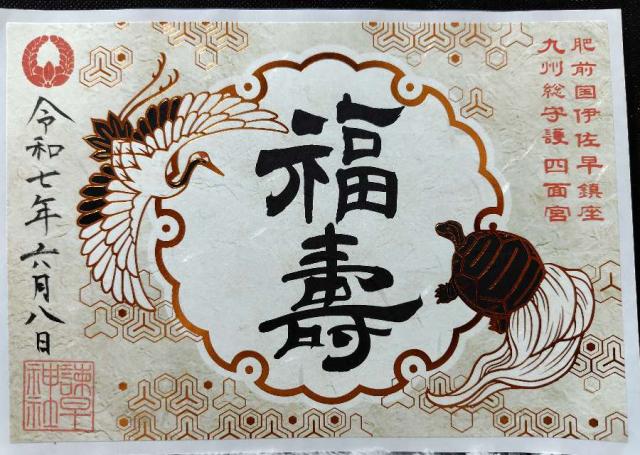 肥前国伊佐早鎮座
九州総守護 四面宮
福
壽
令和七年六月八日
諫早
神社